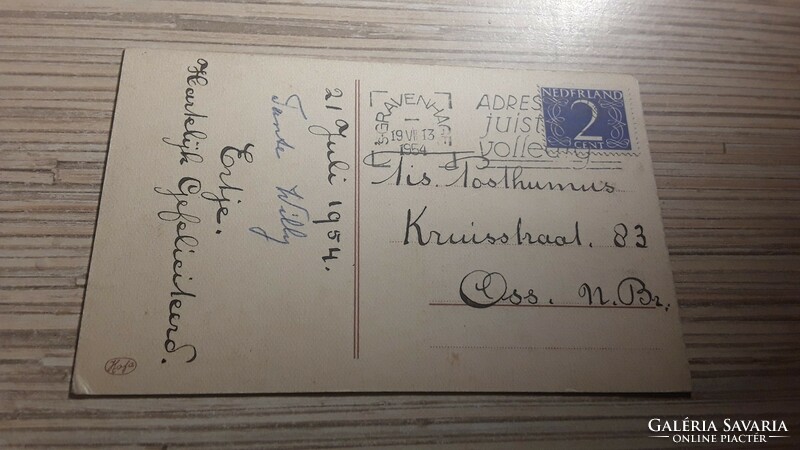 Hartelijk Gefeliciteerd.
Ertje.
Tante Willy
21 Juli 1954.
'SGRAVENHAGE
I
19 VII 13
1954
ADRES
juist
volledig
NEDERLAND
2
CENT
Tis. Posthumus
Kruisstraat. 83
Oss. N. Br.
GALÉRIA SAVARIA
ONLINE PIACTÉR